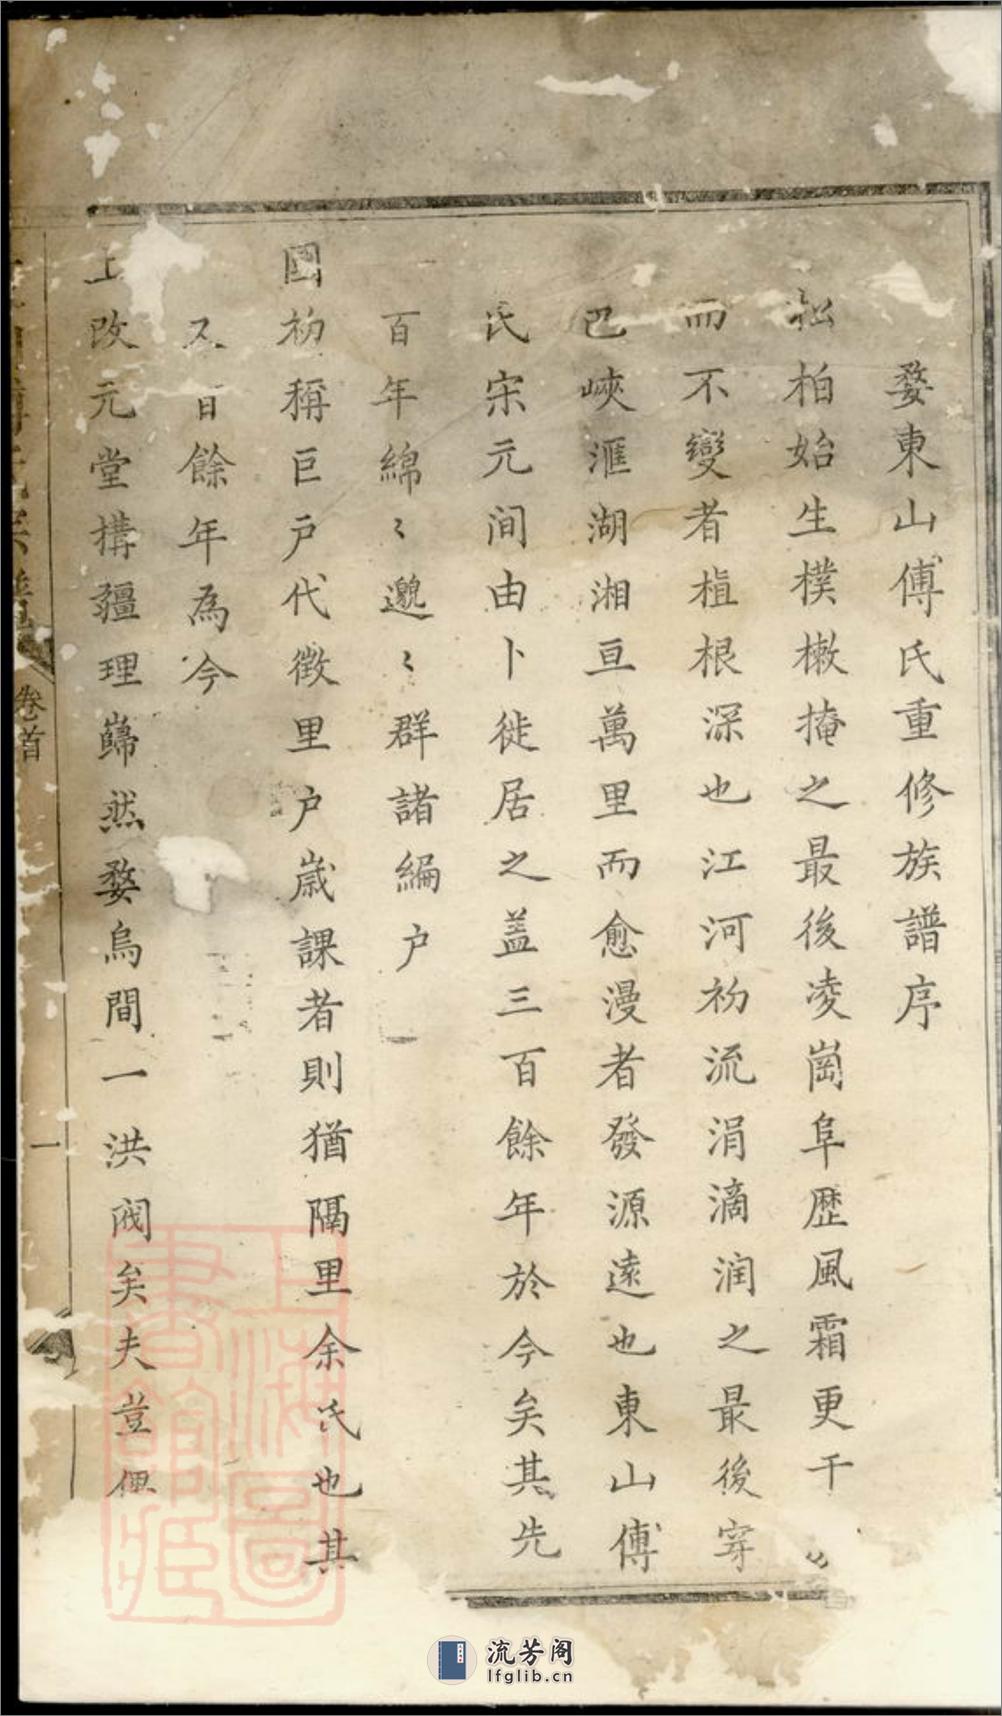 婺東山傅氏重修族譜序
松柏始生樸樕掩之最後凌崗阜歷風霜更千
而不變者植根深也江河初流涓滴潤之最後穿
巴峽滙湖湘亘萬里而愈漫者發源遠也東山傅
氏宋元间由卜徙居之盖三百餘年於今矣其先
百年綿〻邈〻群諸編户
國初稱巨戸代徵里户歲課者則猶隔里余氏也其
百餘年為今
上改元堂構疆理巋然婺烏間一洪閥矣夫荳俚
卷首
一
上海圖書館藏
流芳阁
lfglib.cn